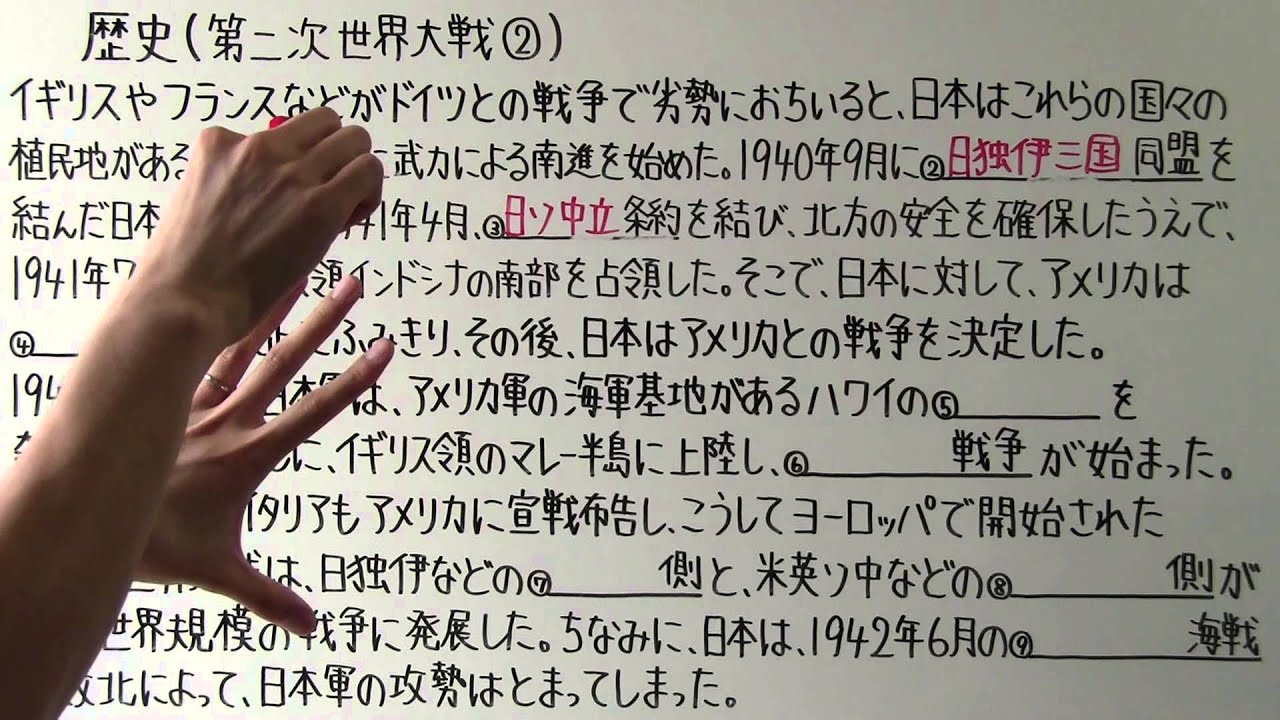 歴史(第二次世界大戦②)
イギリスやフランスなどがドイツとの戦争で劣勢におちいると、日本はこれらの国々の
植民地がある に武力による南進を始めた。1940年9月に②日独伊三国同盟を
結んだ日本 41年4月、③日ソ中立条約を結び、北方の安全を確保したうえで、
1941年7 領インドシナの南部を占領した。そこで、日本に対して、アメリカは
④ ふみきり、その後、日本はアメリカとの戦争を決定した。
194 日本軍は、アメリカ軍の海軍基地があるハワイの⑤ を
に、イギリス領のマレー半島に上陸し、⑥ 戦争が始まった。
イタリアもアメリカに宣戦布告し、こうしてヨーロッパで開始された
は、日独伊などの⑦ 側と、米英ソ中などの⑧ 側が
世界規模の戦争に発展した。ちなみに、日本は、1942年6月の⑨ 海戦
敗北によって、日本軍の攻勢はとまってしまった。